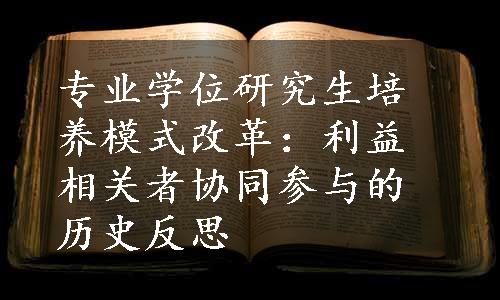 专业学位研究生培
养模式改革：利益
相关者协同参与的
历史反思